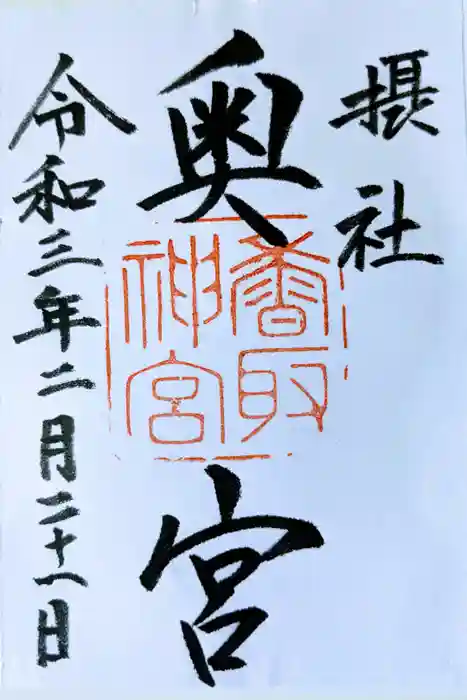 摂社
奥宮
香取
神宮
令和三年二月二十八日